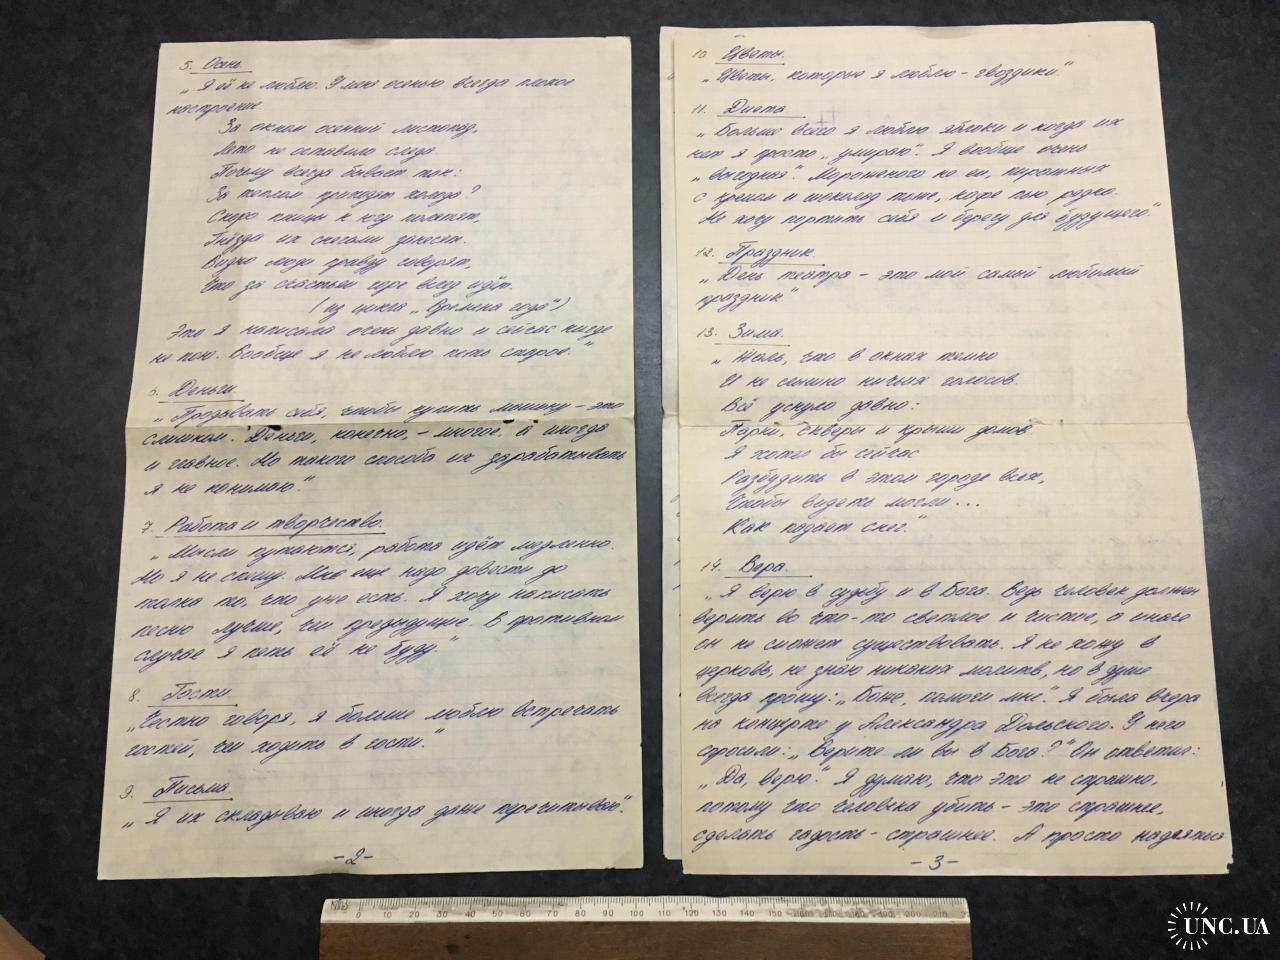 5. Осень.
„Я её не люблю. У меня осенью всегда плохое
настроение
За окном осенний листопад,
Лето не оставило следа.
Почему всегда бывает так:
За теплом приходят холода?
Скоро птицы к югу полетят,
Гнёзда их снегами занесёт.
Видно люди правду говорят,
Что за счастьем горе вслед идёт.
(из цикла „Времена года")
Это я написала очень давно и сейчас нигде
не пою. Вообще я не люблю петь старое."
6. Деньги.
„Продавать себя, чтобы купить машину - это
слишком. Деньги, конечно, - многое, а иногда
и главное. Но такого способа их зарабатывать
я не понимаю."
7. Работа и творчество.
„Мысли путаются, работа идёт медленно.
Но я не спешу. Мне еще надо довести до
толка то, что уже есть. Я хочу написать
песню лучше, чем предыдущие. В противном
случае я петь её не буду."
8. Гости
„Честно говоря, я больше люблю встречать
гостей, чем ходить в гости."
9. Письма.
„Я их складываю и иногда даже перечитываю."
-2-
10. Цветы.
„Цветы, которые я люблю - гвоздики."
11. Диета
„Больше всего я люблю яблоки и когда их
нет я просто „умираю". Я вообще очень
„выгодная". Мороженого не ем, пирожных
с кремом и шоколад тоже, кофе пью редко.
Не хочу портить себя и берегу для будущего."
12. Праздник.
„День театра - это мой самый любимый
праздник"
13. Зима.
„Жаль, что в окнах темно
И не слышно ничьих голосов.
Всё уснуло давно:
Парки, скверы и крыши домов.
Я хотел бы сейчас
Разбудить в этом городе всех,
Чтобы видеть могли...
Как падает снег."
14. Вера.
„Я верю в судьбу и в Бога. Ведь человек должен
верить во что-то светлое и чистое, а иначе
он не сможет существовать. Я не хожу в
церковь, не знаю никаких молитв, но в душе
всегда прошу: „Боже, помоги мне". Я была вчера
на концерте у Александра Дольского. У него
спросили: „Верите ли вы в Бога?" Он ответил:
„Да, верю." Я думаю, что это не страшно,
потому что человека убить - это страшнее,
сделать гадость - страшнее. А просто надеяться
-3-
0 10 20 30 40 50 60 70 80 90 100 110 120 130 140 150 160 170 180 190 200 210
UNC.UA